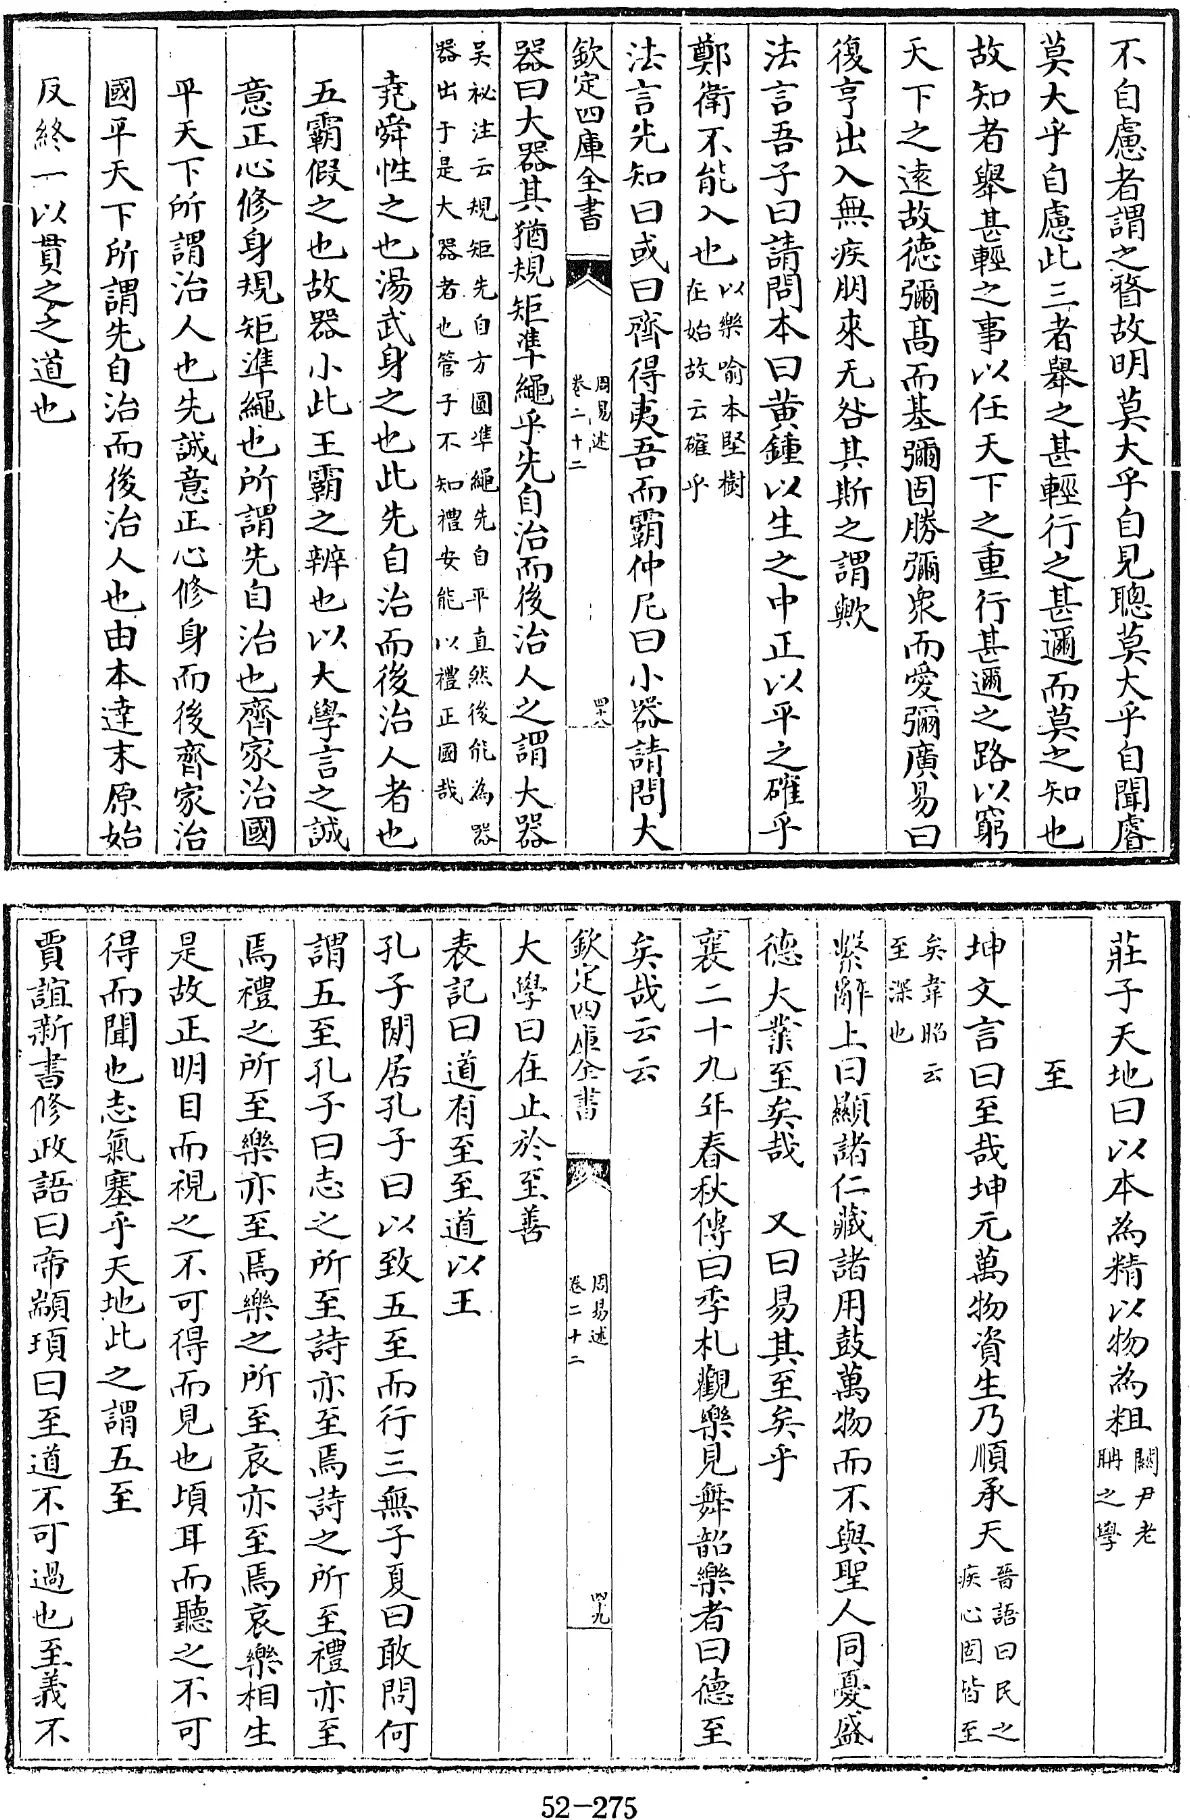 不自慮者謂之瞀故明莫大乎自見聰莫大乎自聞睿
莫大乎自慮此三者舉之甚輕行之甚邇而莫之知也
故知者舉甚輕之事以任天下之重行甚邇之路以窮
天下之遠故德彌髙而基彌固勝彌衆而愛彌廣易曰
復亨出入無疾朋來无咎其斯之謂歟
法言吾子曰請問本曰黄鍾以生之中正以平之確乎
鄭衛不能入也以樂喻本堅樹
在始故云確乎
法言先知曰或曰齊得夷吾而霸仲尼曰小器請問大
欽定四庫全書
周易述
卷二十二
四十八
器曰大器其猶規矩準繩乎先自治而後治人之謂大器
吴祕注云規矩先自方圓準繩先自平直然後能為器
器出于是大器者也管子不知禮安能以禮正國哉
堯舜性之也湯武身之也此先自治而後治人者也
五霸假之也故器小此王霸之辨也以大學言之誠
意正心修身規矩準繩也所謂先自治也齊家治國
平天下所謂治人也先誠意正心修身而後齊家治
國平天下所謂先自治而後治人也由本達末原始
反終一以貫之之道也
莊子天地曰以本為精以物為粗關尹老
聃之學
至
坤文言曰至哉坤元萬物資生乃順承天晉語曰民之
疾心固皆至
矣韋昭云
至深也
繫辭上曰顯諸仁藏諸用鼓萬物而不與聖人同憂盛
德大業至矣哉 又曰易其至矣乎
襄二十九年春秋傳曰季札觀樂見舞韶樂者曰德至
矣哉云云
欽定四庫全書
周易述
卷二十二
四九
大學曰在止於至善
表記曰道有至至道以王
孔子閒居孔子曰以致五至而行三無子夏曰敢問何
謂五至孔子曰志之所至詩亦至焉詩之所至禮亦至
焉禮之所至樂亦至焉樂之所至哀亦至焉哀樂相生
是故正明目而視之不可得而見也頃耳而聽之不可
得而聞也志氣塞乎天地此之謂五至
賈誼新書修政語曰帝顓頊曰至道不可過也至義不
52-275